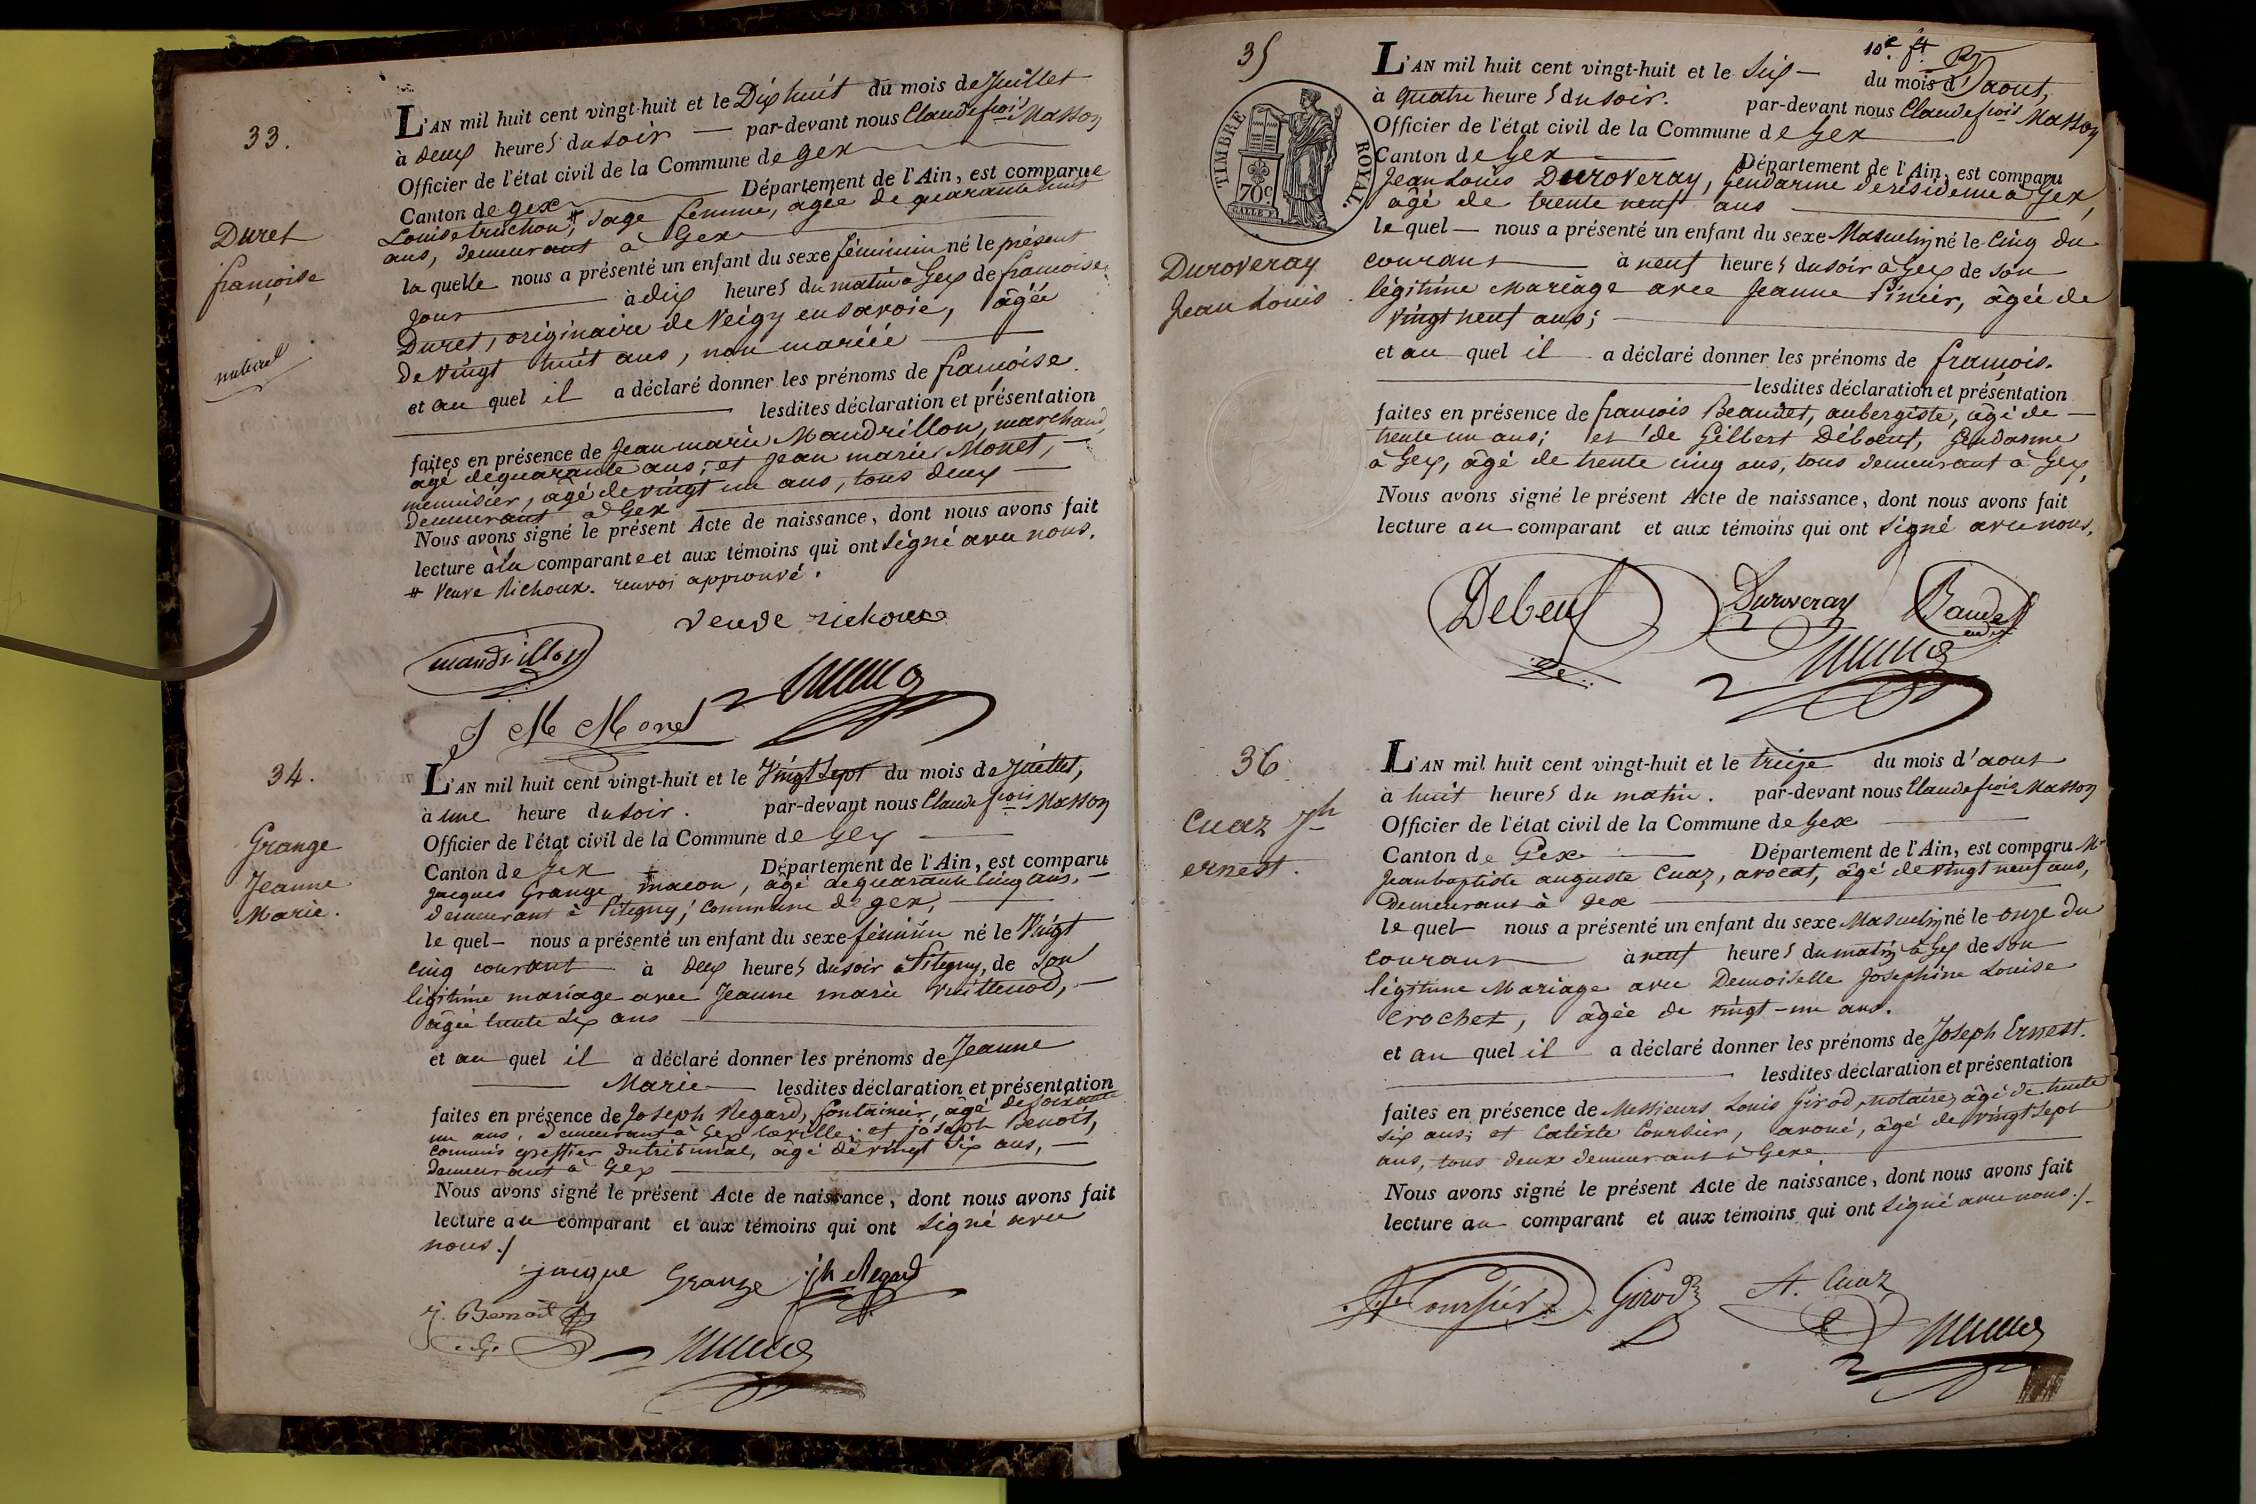 33.
Duret
françoise
naturel
L'AN mil huit cent vingt-huit et le Dix huit du mois de Juillet
à deux heures du soir par-devant nous Claude fçois Masson
Officier de l'état civil de la Commune de gex
Canton de gex Département de l'Ain, est comparue
Louise truchon, # sage femme, agée de quarante huit
ans, demeurant à Gex
la quelle nous a présenté un enfant du sexe féminin né le présent
jour à dix heures du matin à Gex de françoise
Duret, originaire de Veigy en savoie, âgée
de vingt huit ans, non mariée
et au quel il a déclaré donner les prénoms de françoise.
lesdites déclaration et présentation
faites en présence de Jean marie Mandrillon, marchand,
agé de quarante ans; et Jean marie Monet,
menuisier, âgé de vingt un ans, tous deux
demeurant à Gex
Nous avons signé le présent Acte de naissance, dont nous avons fait
lecture à la comparante et aux témoins qui ont signé avec nous.
# Veuve Richoux. renvoi approuvé.
veuve richoux
mandrillon
J M Monet
34.
Grange
Jeanne
Marie.
L'AN mil huit cent vingt-huit et le Vingt sept du mois de juillet,
à une heure du soir. par-devant nous Claude fçois Masson
Officier de l'état civil de la Commune de Gex
Canton de Gex Département de l'Ain, est comparu
Jacques Grange, macon, âgé de quarante cinq ans,
demeurant à Pitegny, commune de gex,
le quel nous a présenté un enfant du sexe féminin né le Vingt
cinq courant à deux heures du soir à Pitegny, de son
légitime mariage avec Jeanne marie Vuillenod,
âgée trente six ans
et au quel il a déclaré donner les prénoms de Jeanne
Marie lesdites déclaration et présentation
faites en présence de Joseph Regard, fontainier, âgé de soixante
un ans, demeurant à Gex la ville; et joseph Benoit,
commis greffier du tribunal, âgé de vingt six ans,
demeurant à Gex
Nous avons signé le présent Acte de naissance, dont nous avons fait
lecture au comparant et aux témoins qui ont signé avec
nous./
jacque Grange jh Regard
j. Benoit
35
10e ft
TIMBRE ROYAL.
70 c.
Duroveray
Jean Louis
L'AN mil huit cent vingt-huit et le Six du mois d'aout,
à quatre heures du soir. par-devant nous Claude fçois Masson
Officier de l'état civil de la Commune de Gex
Canton de Gex Département de l'Ain, est comparu
Jean Louis Duroveray, gendarme de résidence à Gex,
âgé de trente neuf ans
le quel nous a présenté un enfant du sexe Masculin né le cinq du
courant à neuf heures du soir à Gex de son
légitime Mariage avec Jeanne Pinier, âgée de
vingt neuf ans;
et au quel il a déclaré donner les prénoms de françois.
lesdites déclaration et présentation
faites en présence de françois Beaudet, aubergiste, âgé de
trente un ans; et de Gilbert Déboeuf, Gendarme
à Gex, âgé de trente cinq ans, tous demeurant à Gex,
Nous avons signé le présent Acte de naissance, dont nous avons fait
lecture au comparant et aux témoins qui ont signé avec nous.
Debeuf Duroveray Baudet
36.
Cuaz Jh
ernest.
L'AN mil huit cent vingt-huit et le treize du mois d'aout
à huit heures du matin. par-devant nous Claude fçois Masson
Officier de l'état civil de la Commune de Gex
Canton de Gex Département de l'Ain, est comparu Mr
Jean baptiste auguste Cuaz, avocat, âgé de vingt neuf ans,
demeurant à Gex
le quel nous a présenté un enfant du sexe Masculin né le onze du
courant à neuf heures du matin à Gex de son
légitime Mariage avec Demoiselle Josephine Louise
Crochet, âgée de vingt-un ans.
et au quel il a déclaré donner les prénoms de Joseph Ernest.
lesdites déclaration et présentation
faites en présence de Messieurs Louis Girod, notaire, âgé de trente
six ans; et Calixte Coursier, avoué, âgé de vingt sept
ans, tous deux demeurant à Gex
Nous avons signé le présent Acte de naissance, dont nous avons fait
lecture au comparant et aux témoins qui ont signé avec nous./.
Coursier Girod A. Cuaz